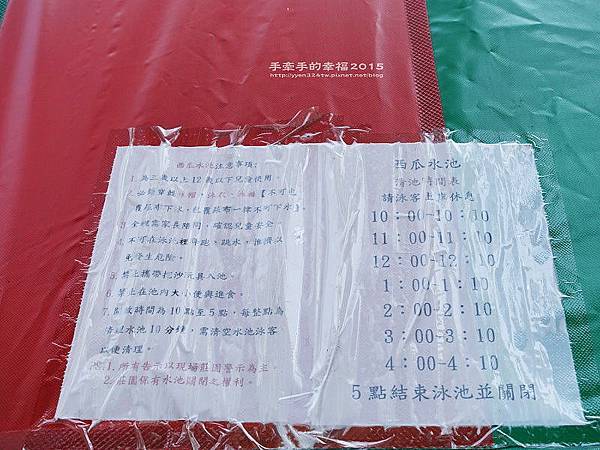 手牽手的幸福2015
http://yyen324tw.pixnet.net/blog
西瓜水池注意事項:
1. 為三歲以上12歲以下兒童使用。
2. 必須穿戴泳帽,泳衣、泳褲【不可包
覆尿布下水,包覆尿布一律不可下水】。
3. 全程需家長陪同,確認兒童安全
4. 不可在泳池裡奔跑、跳水、推擠以
免發生危險。
5. 禁止攜帶挖沙玩具入池。
6. 禁止在池內大小便與進食。
7. 開放時間為10點至5點,每整點為
清理水池10分鐘,需清空水池泳客
以便清理。
PS.1. 所有告示以現場莊園警示為主。
2. 莊園保有水池開閉之權利。
西瓜水池
清池時間表
請泳客上岸休息
10:00-10:10
11:00-11:10
12:00-12:10
1:00-1:10
2:00-2:10
3:00-3:10
4:00-4:10
5點結束泳池並關閉